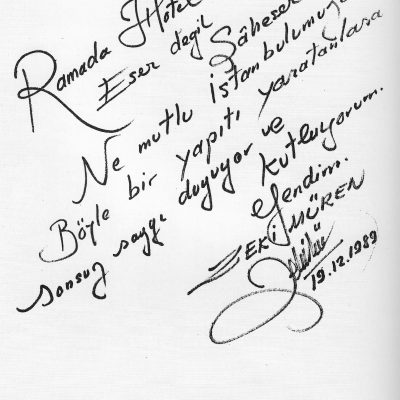 Ramada Hotel
Eser değil Şaheser
Ne mutlu İstanbulumuza
Böyle bir yapıtı yaratanlara
sonsuz saygı duyuyor ve kutluyorum.
efendim.
ZEKİ MÜREN
19.12.1989